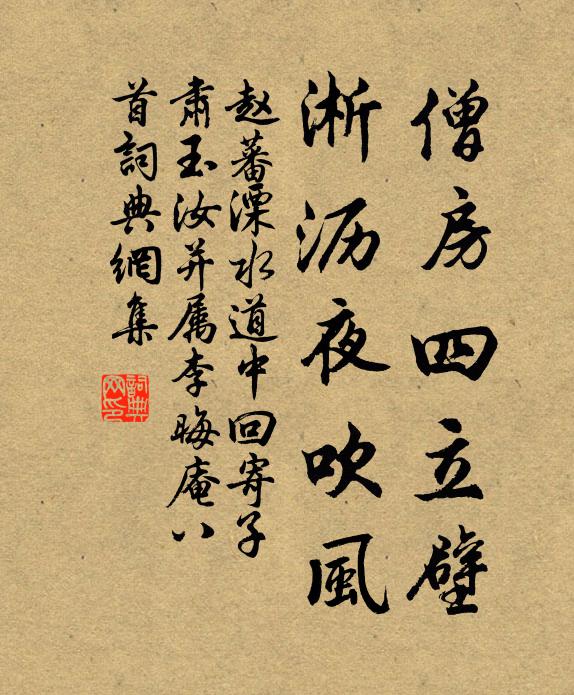 僧房四立壁
淅沥夜吹風
赵蕃溧水道中回寄子
肅玉汝并属李晦庵八
首詞典網集
詞典
网印